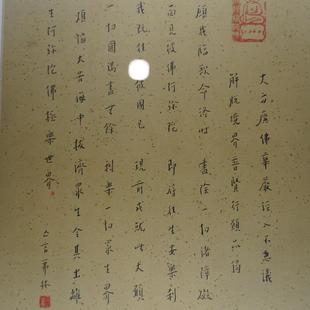 大方廣佛華嚴經入不思議
解脫境界普賢行願品偈
願我臨欲命終時 盡除一切諸障礙
面見彼佛阿彌陀 即得往生安樂剎
我既往彼國已 現前成就此大願
一切圓滿盡無餘 利樂一切眾生界
煩惱大苦海中拔濟眾生令其出離
生阿彌陀佛極樂世界